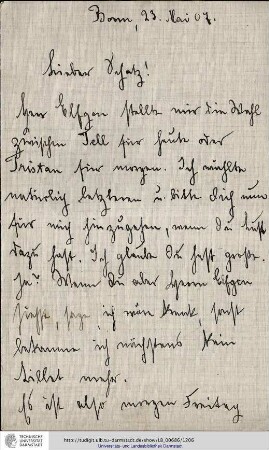 Bonn, 23. Mai 07.
Lieber Schatz!
Herr Elfgen stellte mir die Wahl
zwischen Tell für heute oder
Tristan für morgen. Ich wählte
natürlich letzteren u. bitte Dich nun
für mich hinzugehen, wenn Du Lust
dazu hast. Ich glaube Du hast große.
Ja? Wenn Du aber Herrn Elfgen
siehst, sage, ich wäre krank, sonst
bekomme ich nächstens kein
Billet mehr.
Es ist also morgen Freitag
TECHNISCHE
UNIVERSITÄT
DARMSTADT
http://tudigit.ulb.tu-darmstadt.de/show/LB_00686/1206
Universitäts- und Landesbibliothek Darmstadt